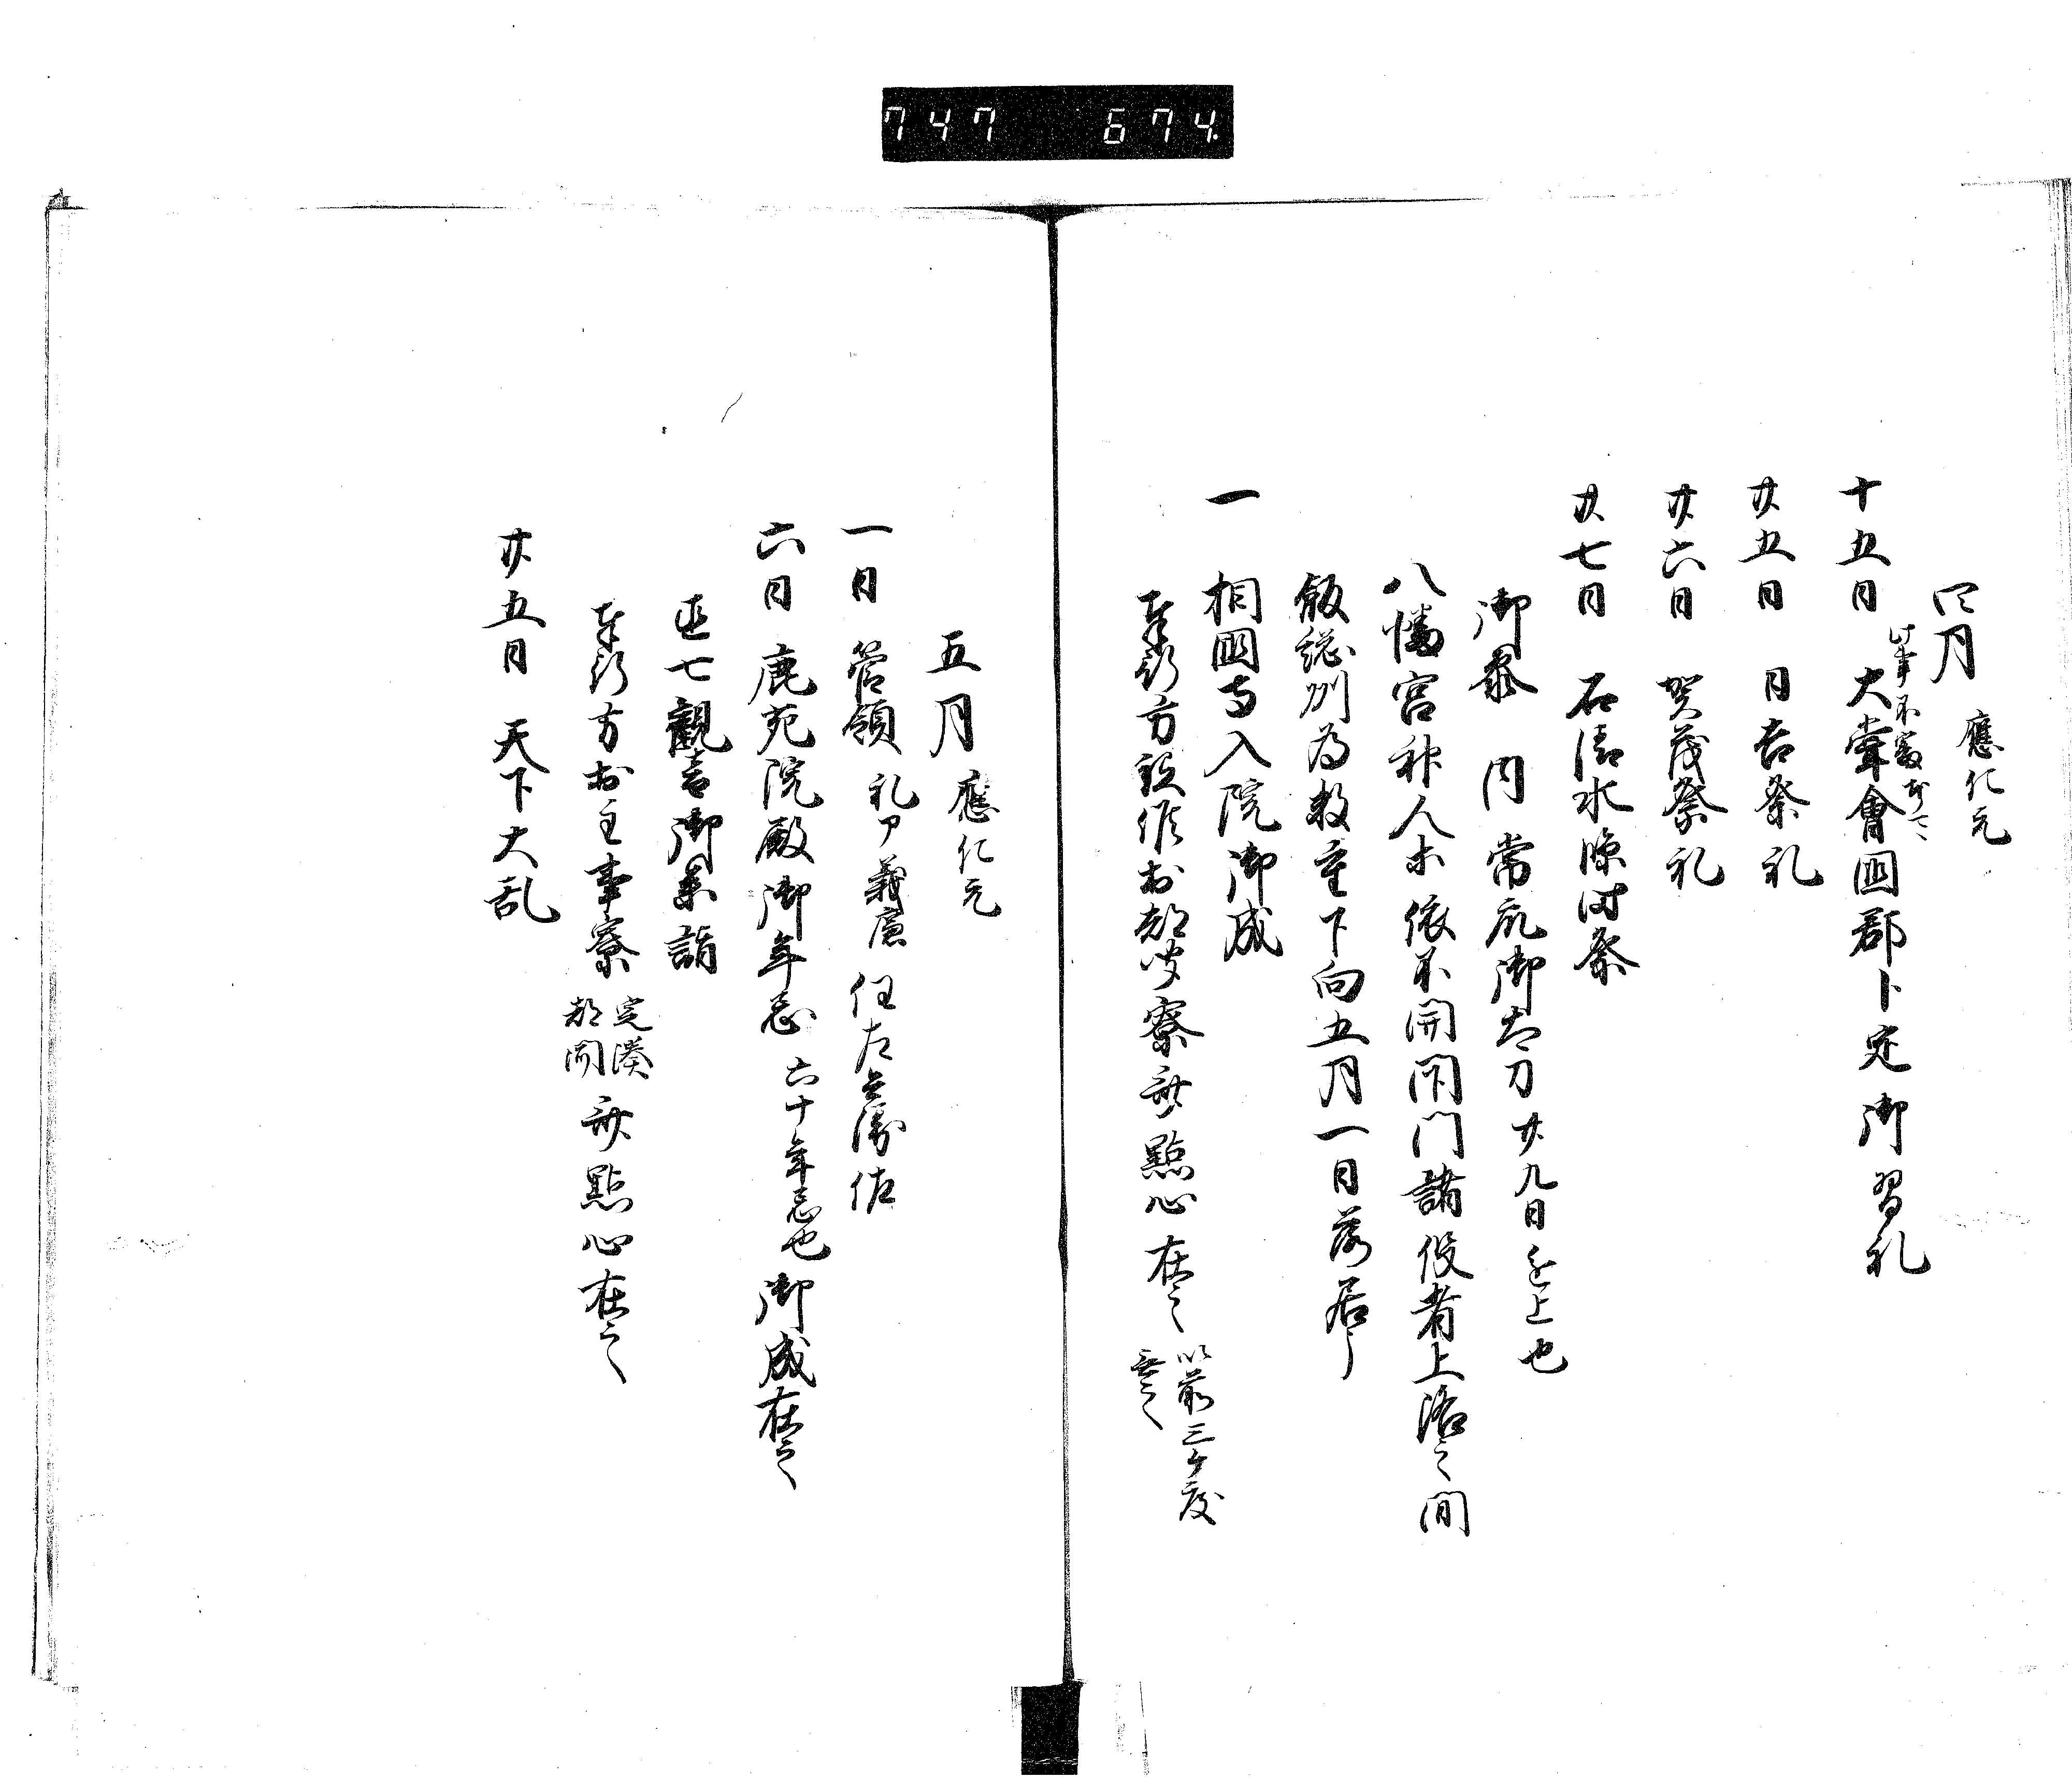 747 674.
四月 應仁元
十五日 大嘗會國郡卜定御習礼
廿五日 日吉祭礼
廿六日 賀茂祭礼
廿七日 石清水臨時祭
御参 内 常 御太刀廿九日 上也
八幡宮神人等依不開 門諸役者上洛之間
飯総州為数重下向五月一日落居
一 相國寺入院御成
奉行方 於都聞寮 點心在之 以前三ヶ度 無之
五月 應仁元
一日 管領 礼 義廉 任左兵衛佐
六日 鹿苑院殿御年忌 六十年忌也 御成在之
七觀音御参詣
奉行方於主事寮 都聞 點心在之
廿五日 天下大乱